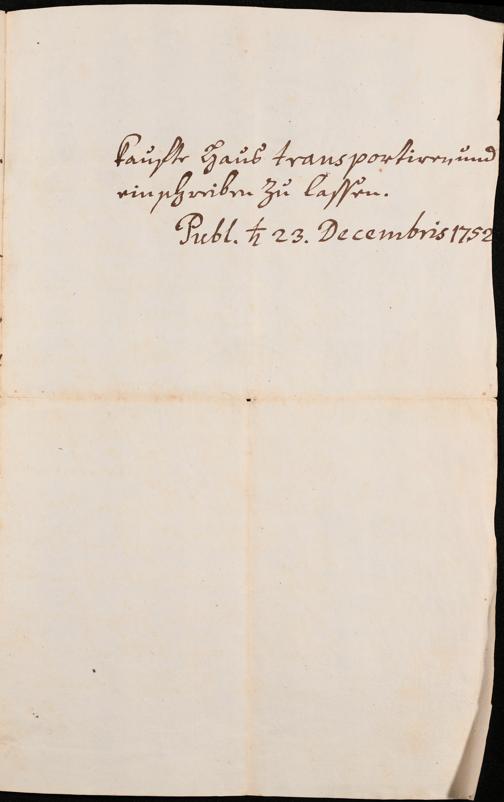 kaufte Haus transportiren, und
einschreiben zu lassen.
Publ. ♄ 23. Decembris 1752